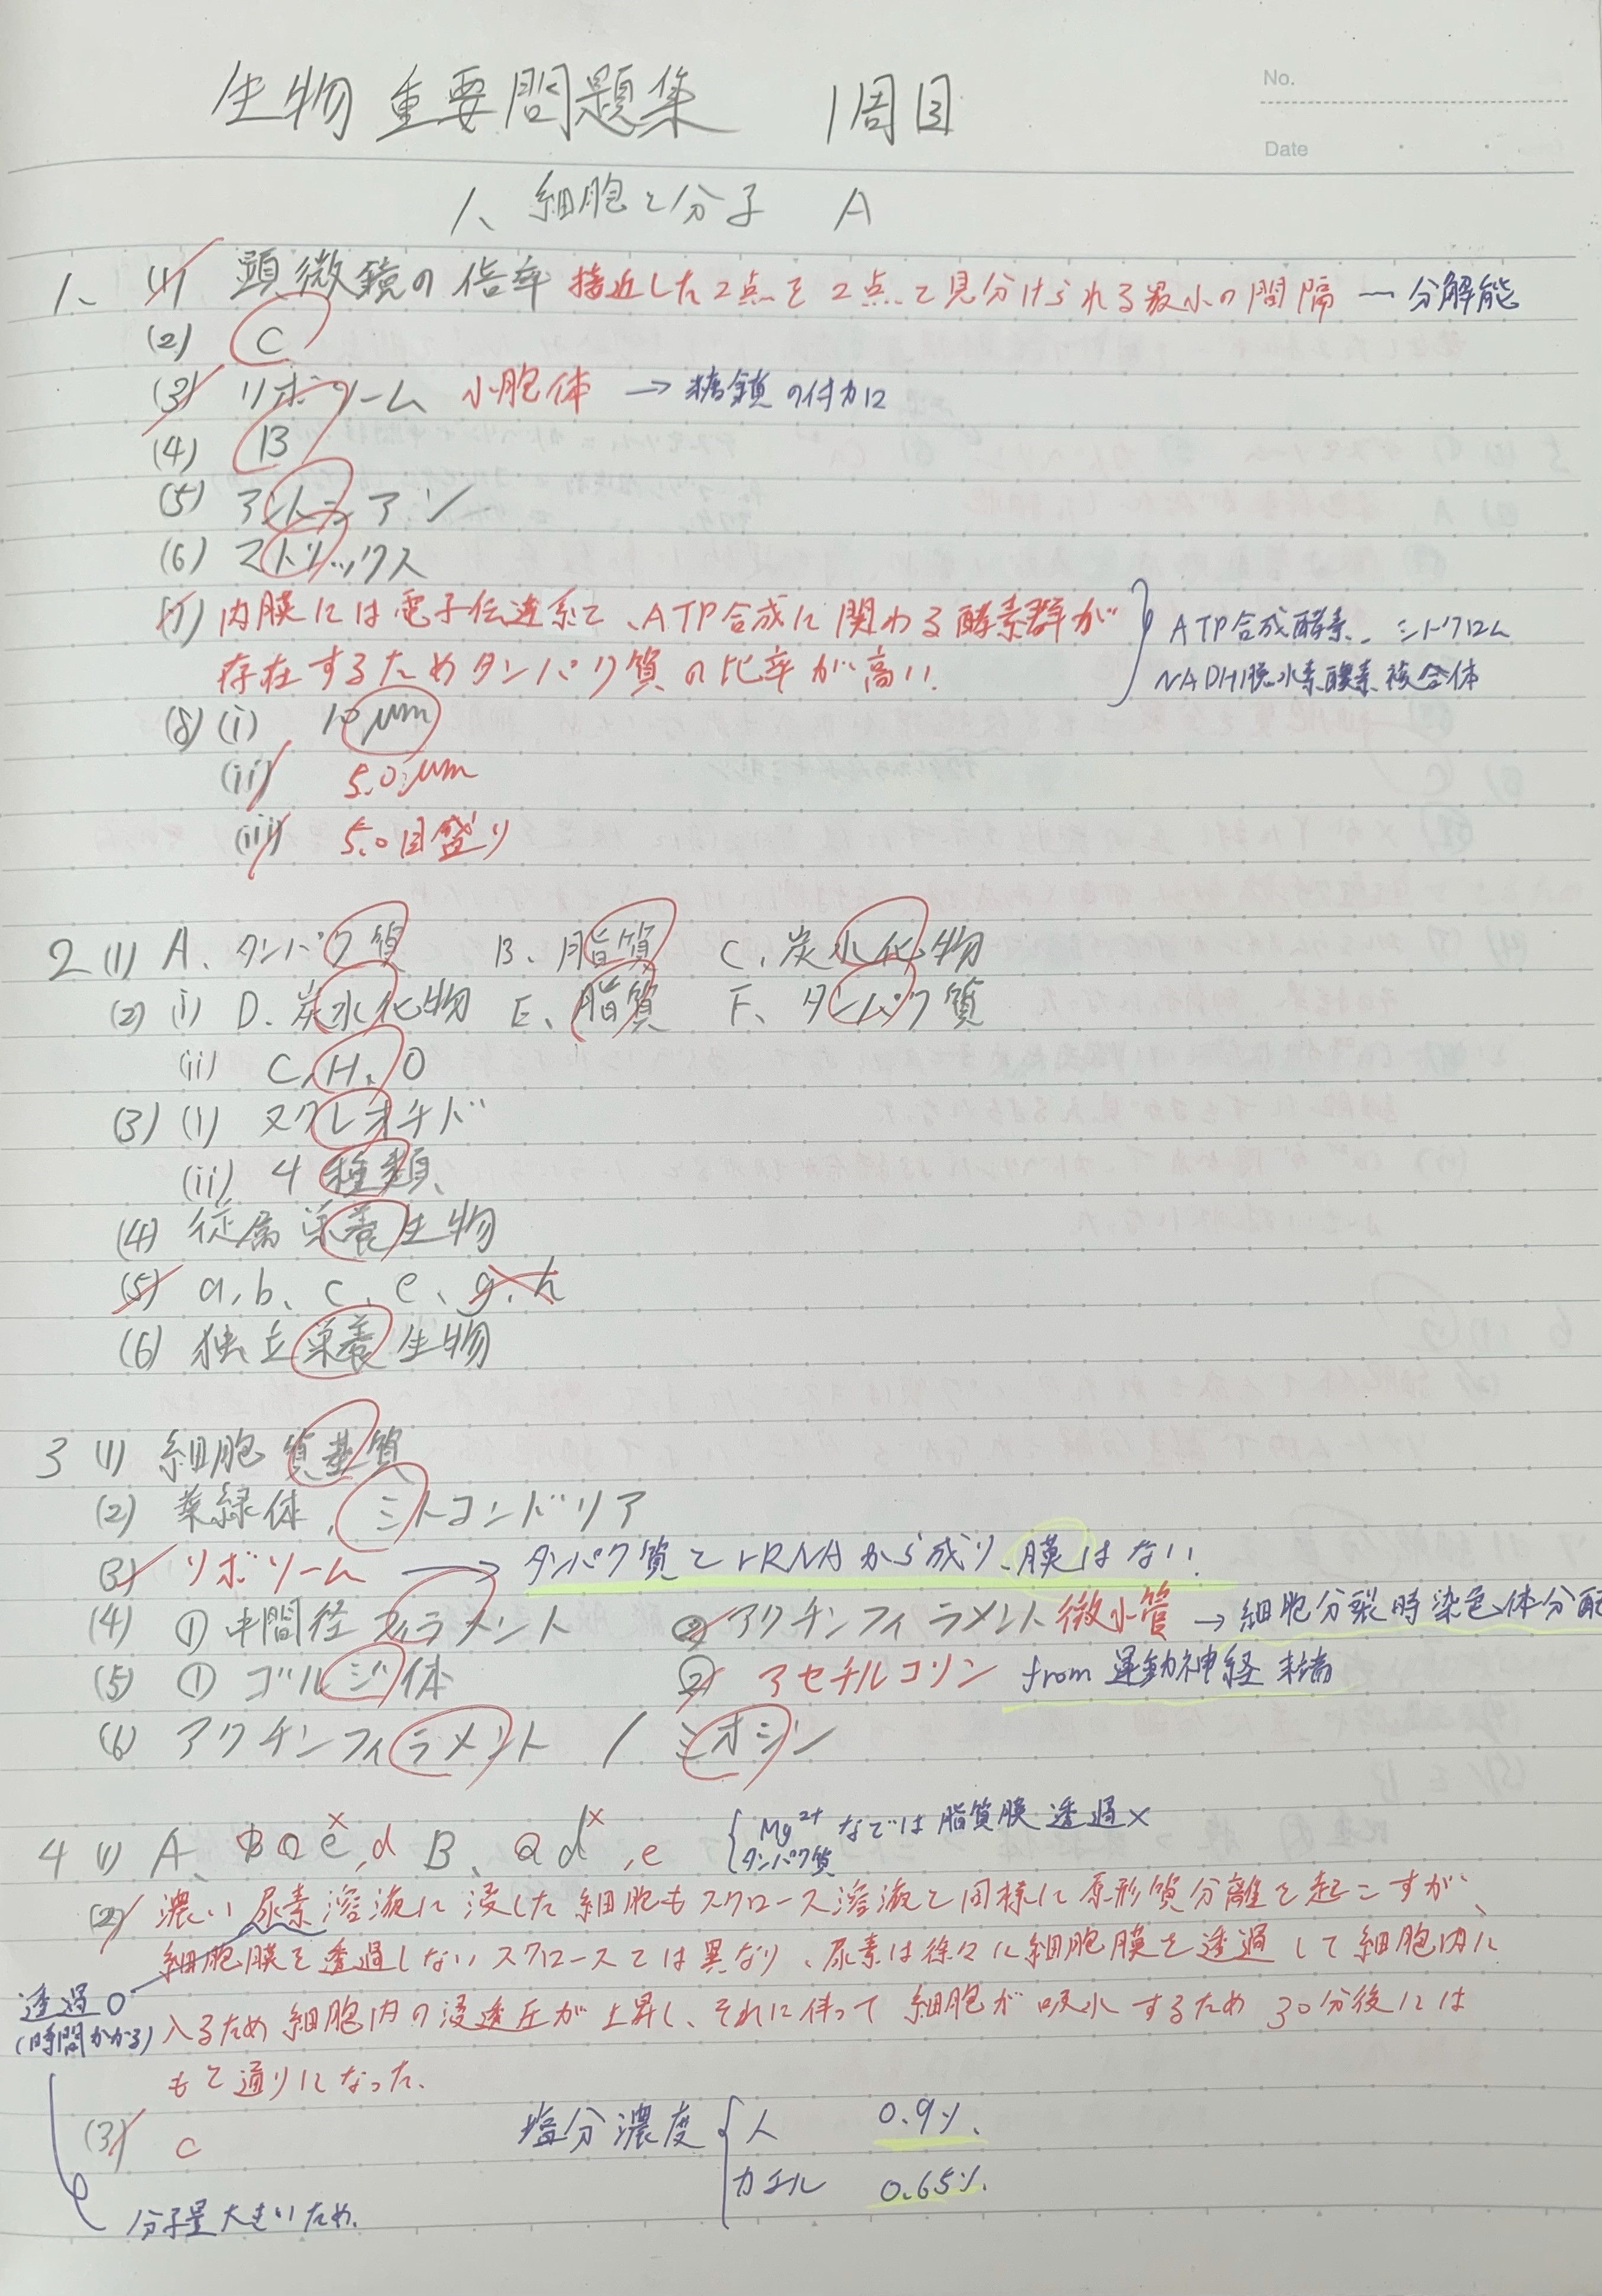 生物 重要問題集 1周目
No.
Date
1、細胞と分子 A
1、(1) 顕微鏡の倍率 接近した2点を2点と見分けられる最小の間隔 ― 分解能
(2) C
(3) リボソーム 小胞体 → 糖鎖の付加
(4) B
(5) アントシアン
(6) マトリックス
(7) 内膜には電子伝達系で、ATP合成に関わる酵素群が
存在するためタンパク質の比率が高い。
ATP合成酵素、シトクロム
NADH脱水素酵素複合体
(8) (i) 10μm
(ii) 5.0μm
(iii) 5.0目盛り
2 (1) A、タンパク質 B、脂質 C、炭水化物
(2) (i) D、炭水化物 E、脂質 F、タンパク質
(ii) C、H、O
(3) (i) ヌクレオチド
(ii) 4種類
(4) 従属栄養生物
(5) a、b、c、e、g、h
(6) 独立栄養生物
3 (1) 細胞質基質
(2) 葉緑体、ミトコンドリア
(3) リボソーム → タンパク質とrRNAから成り、膜はない!
(4) ① 中間径フィラメント ② アクチンフィラメント 微小管 → 細胞分裂時染色体分配
(5) ① ゴルジ体 ② アセチルコリン from 運動神経末端
(6) アクチンフィラメント / ミオシン
4 (1) A、a e× ,d B、a d× ,e { Mg²⁺ などは脂質膜透過×
タンパク質
(2) 濃い尿素溶液に浸した細胞もスクロース溶液と同様に原形質分離を起こすが、
細胞膜を透過しないスクロースとは異なり、尿素は徐々に細胞膜を透過して細胞内に
入るため細胞内の浸透圧が上昇し、それに伴って細胞が吸水するため30分後には
もと通りになった。
透過○
(時間かかる)
分子量大きいため。
(3) c
塩分濃度 { 人 0.9%
カエル 0.65%